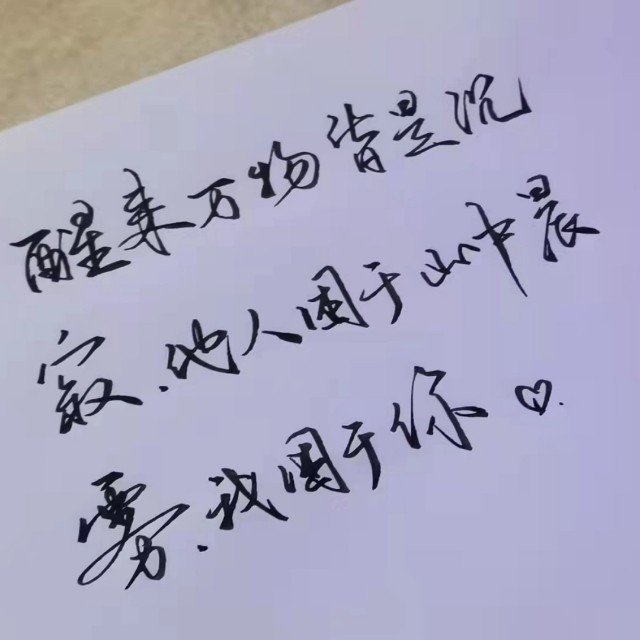 醒来万物皆是沉
寂.他人困于山中晨
雾.我困于你♡.